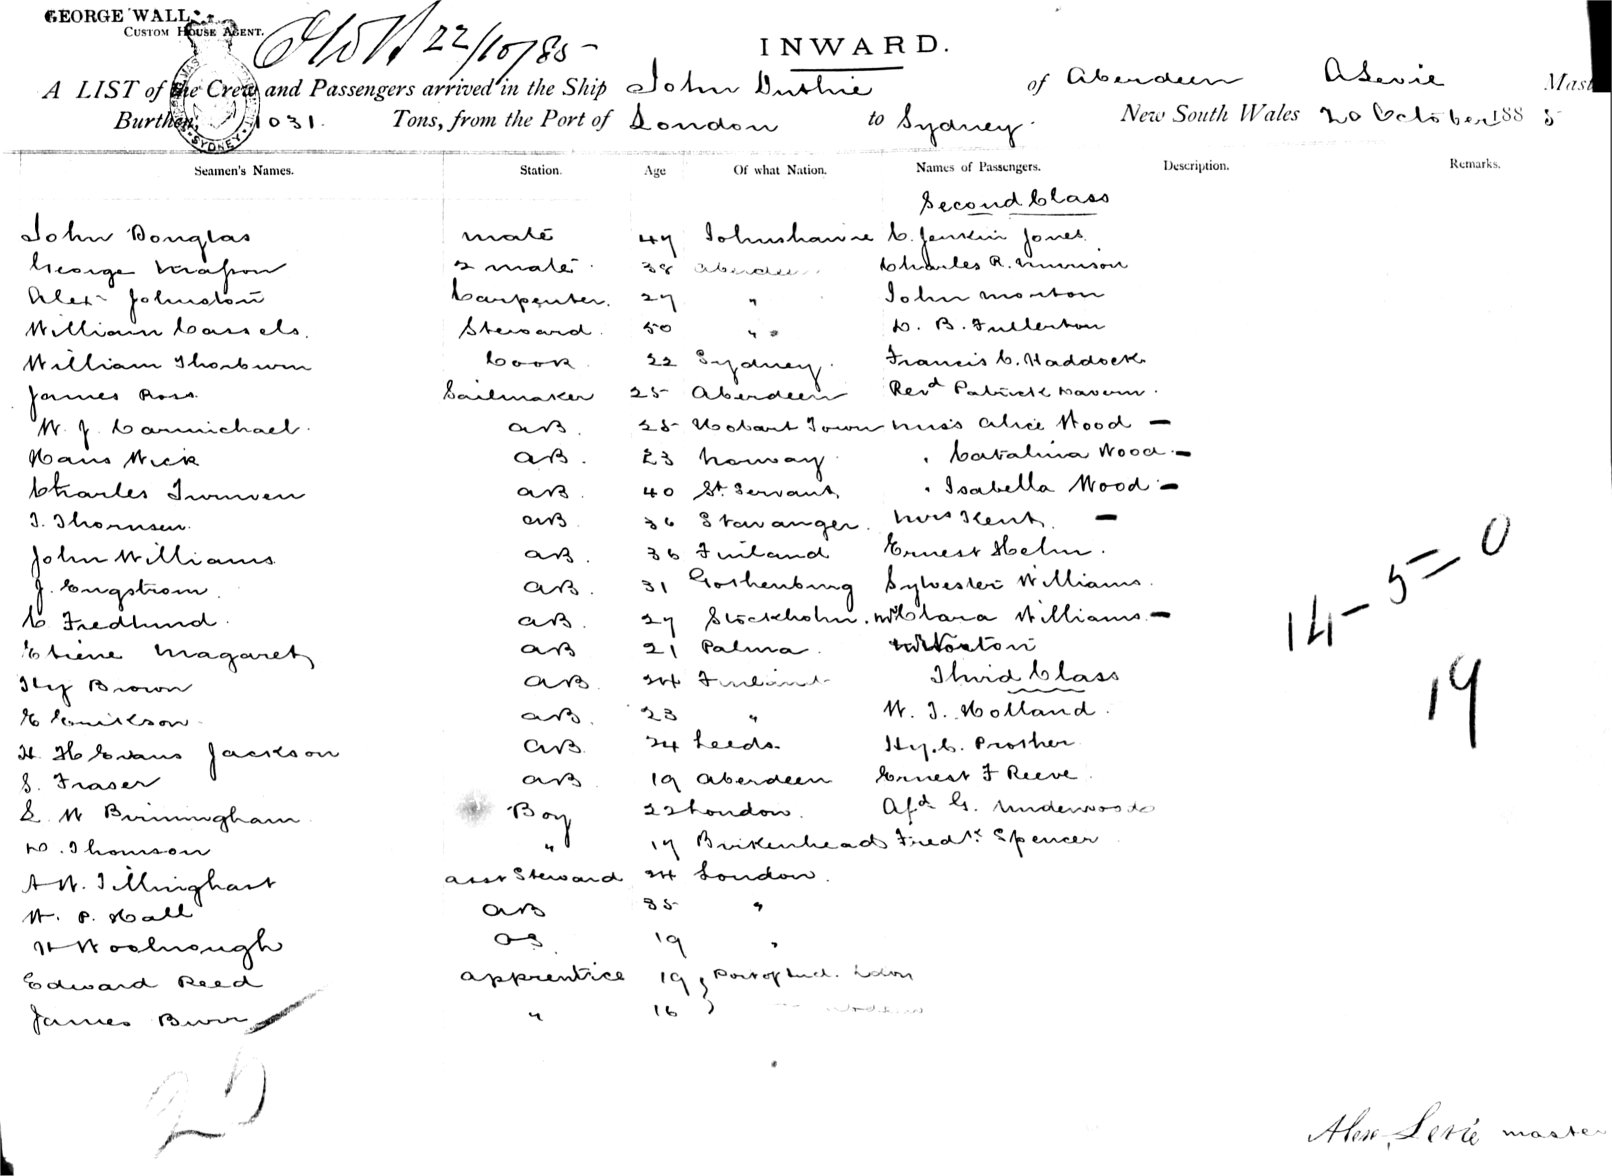 GEORGE WALL,
CUSTOM HOUSE AGENT.
22/10/85
INWARD.
A LIST of the Crew and Passengers arrived in the Ship John Duthie of Aberdeen A Levie Mast
Burthen, 1031. Tons, from the Port of London to Sydney. New South Wales 20 October 1885
Seamen's Names. Station. Age Of what Nation. Names of Passengers. Description. Remarks.
Second Class
John Douglas mate 47 Johnshaven C. Jenkin Jones
George 2 mate 38 Aberdeen Charles R. Murison
Alexr Johnston Carpenter. 27 " John Morton
William Cassels. Steward. 50 " " D. B. Fullerton
William Thorburn Cook 22 Sydney. Francis C. Haddock
James Ross Sailmaker 25 Aberdeen Revd Patrick Davern.
W. J. Carmichael. AB. 25 Hobart Town Miss Alice Wood –
Hans Wick AB. 23 Norway. " Catalina Wood –
Charles AB. 40 St. Servant " Isabella Wood –
T. Thornsen. AB. 36 Stavanger. Mrs Kent. –
John Williams AB. 36 Finland Ernest Helm.
J. Engstrom. AB. 31 Gothenburg Sylvester Williams.
C Fredlund. AB. 27 Stockholm. Clara Williams. –
Etiene Magarety AB 21 Palma. Norton
Third Class
Hy Brown AB. 24 Finland
E Erikson AB. 23 " W. T. Holland.
H. H Evans Jackson AB. 24 Leeds. Hy. C. Prosher
S. Fraser AB. 19 Aberdeen Ernest F Reeve.
E. W Birmingham Boy 22 London. Afd G. Underwood
D. Thomson " 17 Birkenhead Fredk. Spencer
A W. Tillinghast Asst Steward 24 London.
W. P. Hall AB 35 "
H Woolnough OS. 19 "
Edward Reed Apprentice 19
James Burr " 16
14 – 5 – 0
19
25
Alex. Levie master